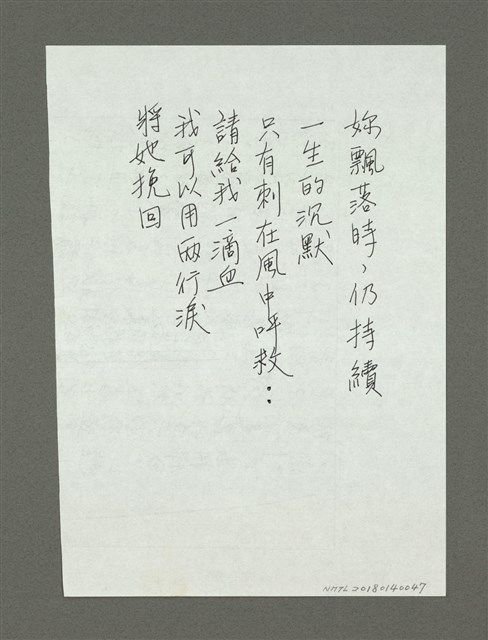 妳飄落時、仍持續
一生的沉默
只有刺在風中呼救：
請給我一滴血
我可以用两行淚
將她挽回
NMTL20180140047